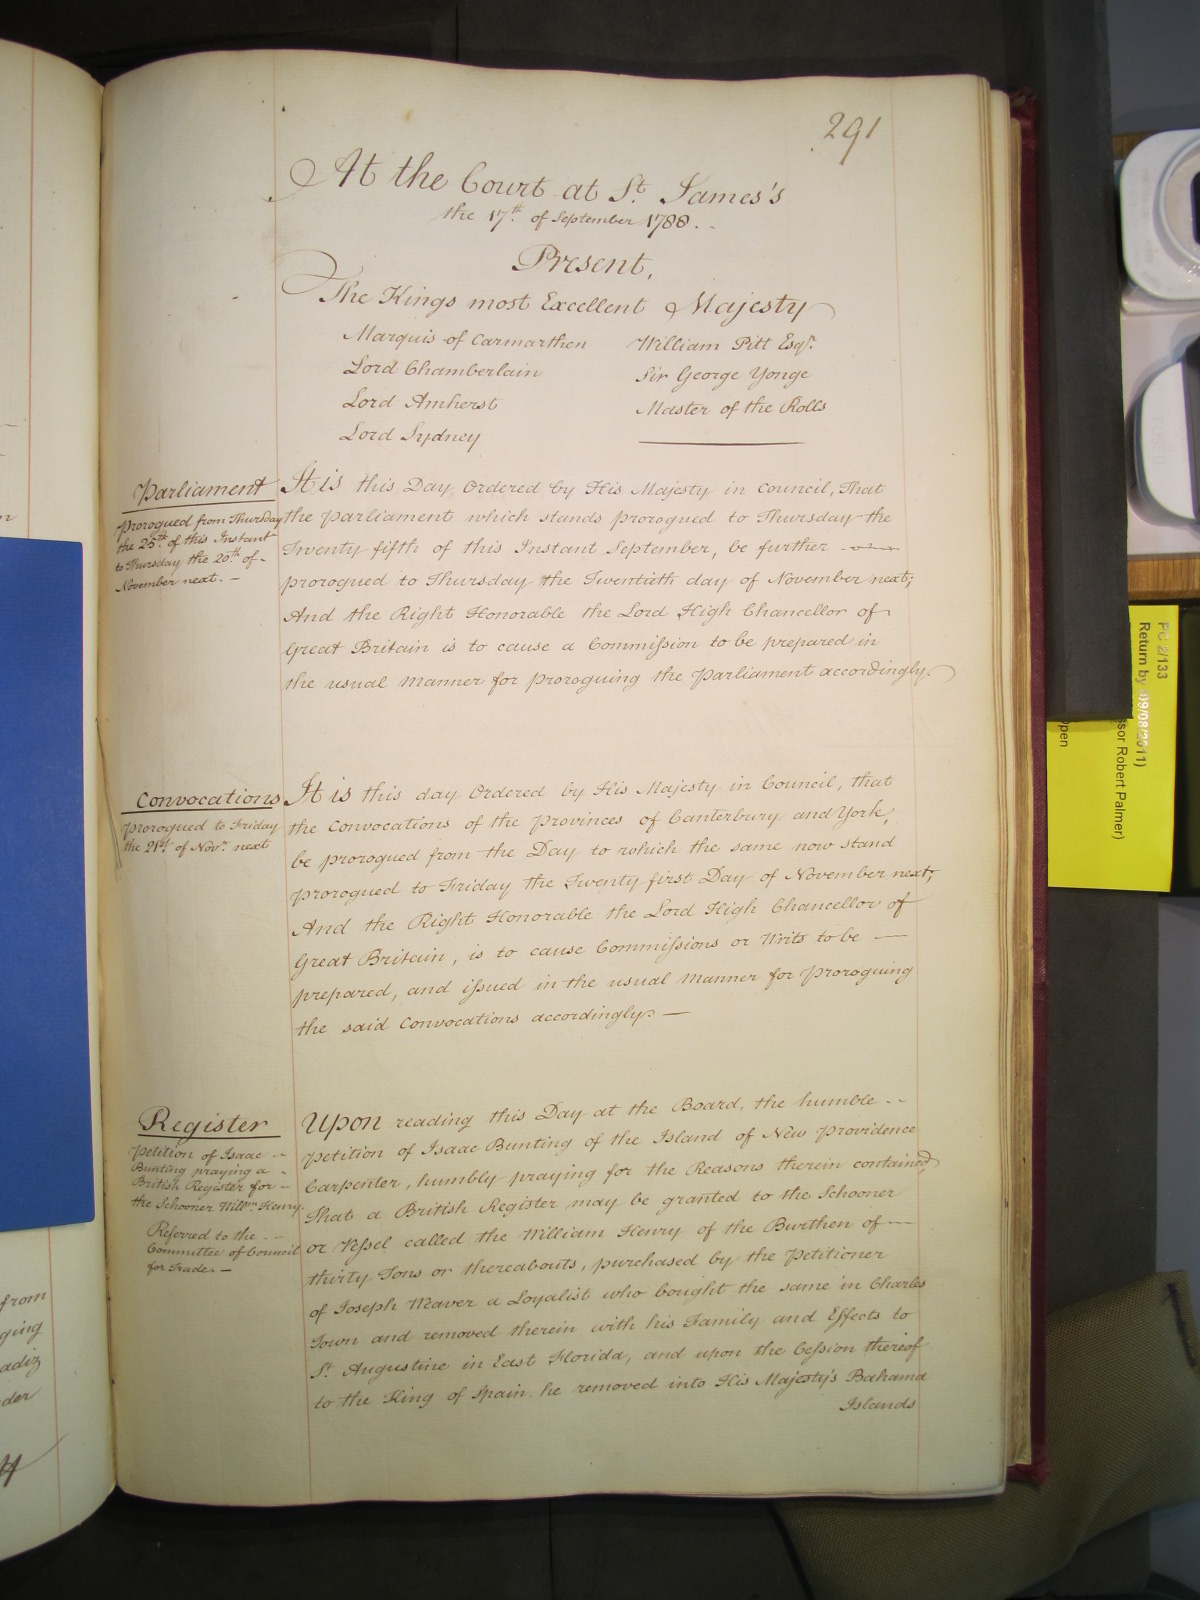 291
At the Court at St. James's
the 17th. of September 1788. ..
Present,
The Kings most Excellent Majesty
Marquis of Carmarthen
Lord Chamberlain
Lord Amherst
Lord Sydney
William Pitt Esqr.
Sir George Yonge
Master of the Rolls
Parliament
prorogued from Thursday
the 25th. of this Instant
to Thursday the 20th. of -
November next. -
It is this Day Ordered by His Majesty in Council, That
the Parliament which stands prorogued to Thursday the
Twenty fifth of this Instant September, be further
prorogued to Thursday the Twentieth day of November next;
And the Right Honorable the Lord High Chancellor of
Great Britain is to cause a Commission to be prepared in
the usual Manner for proroguing the Parliament accordingly.
Convocations
prorogued to Friday
the 21st. of Novr. next
It is this day Ordered by His Majesty in Council, that
the Convocations of the Provinces of Canterbury and York,
be prorogued from the Day to which the same now stand
prorogued to Friday the Twenty first Day of November next;
And the Right Honorable the Lord High Chancellor of
Great Britain, is to cause Commissions or Writs to be —
prepared, and issued in the usual Manner for Proroguing
the said Convocations accordingly. —
Register
Petition of Isaac -
Bunting praying a -
British Register for -
the Schooner Willm. Henry.
Referred to the -
Committee of Council
for Trade. -
Upon reading this Day at the Board, the humble --
Petition of Isaac Bunting of the Island of New Providence
Carpenter, humbly praying for the Reasons therein contained
That a British Register may be granted to the Schooner
or Vessel called the William Henry of the Burthen of —
thirty Tons or thereabouts, purchased by the Petitioner
of Joseph Maver a Loyalist who bought the same in Charles
Town and removed therein with his Family and Effects to
St. Augustine in East Florida, and upon the Cession thereof
to the King of Spain, he removed into His Majesty's Bahama
Islands
from
ging
adiz
der
PC 2/133
Return by 09/08/2011)
ssor Robert Palmer)
open